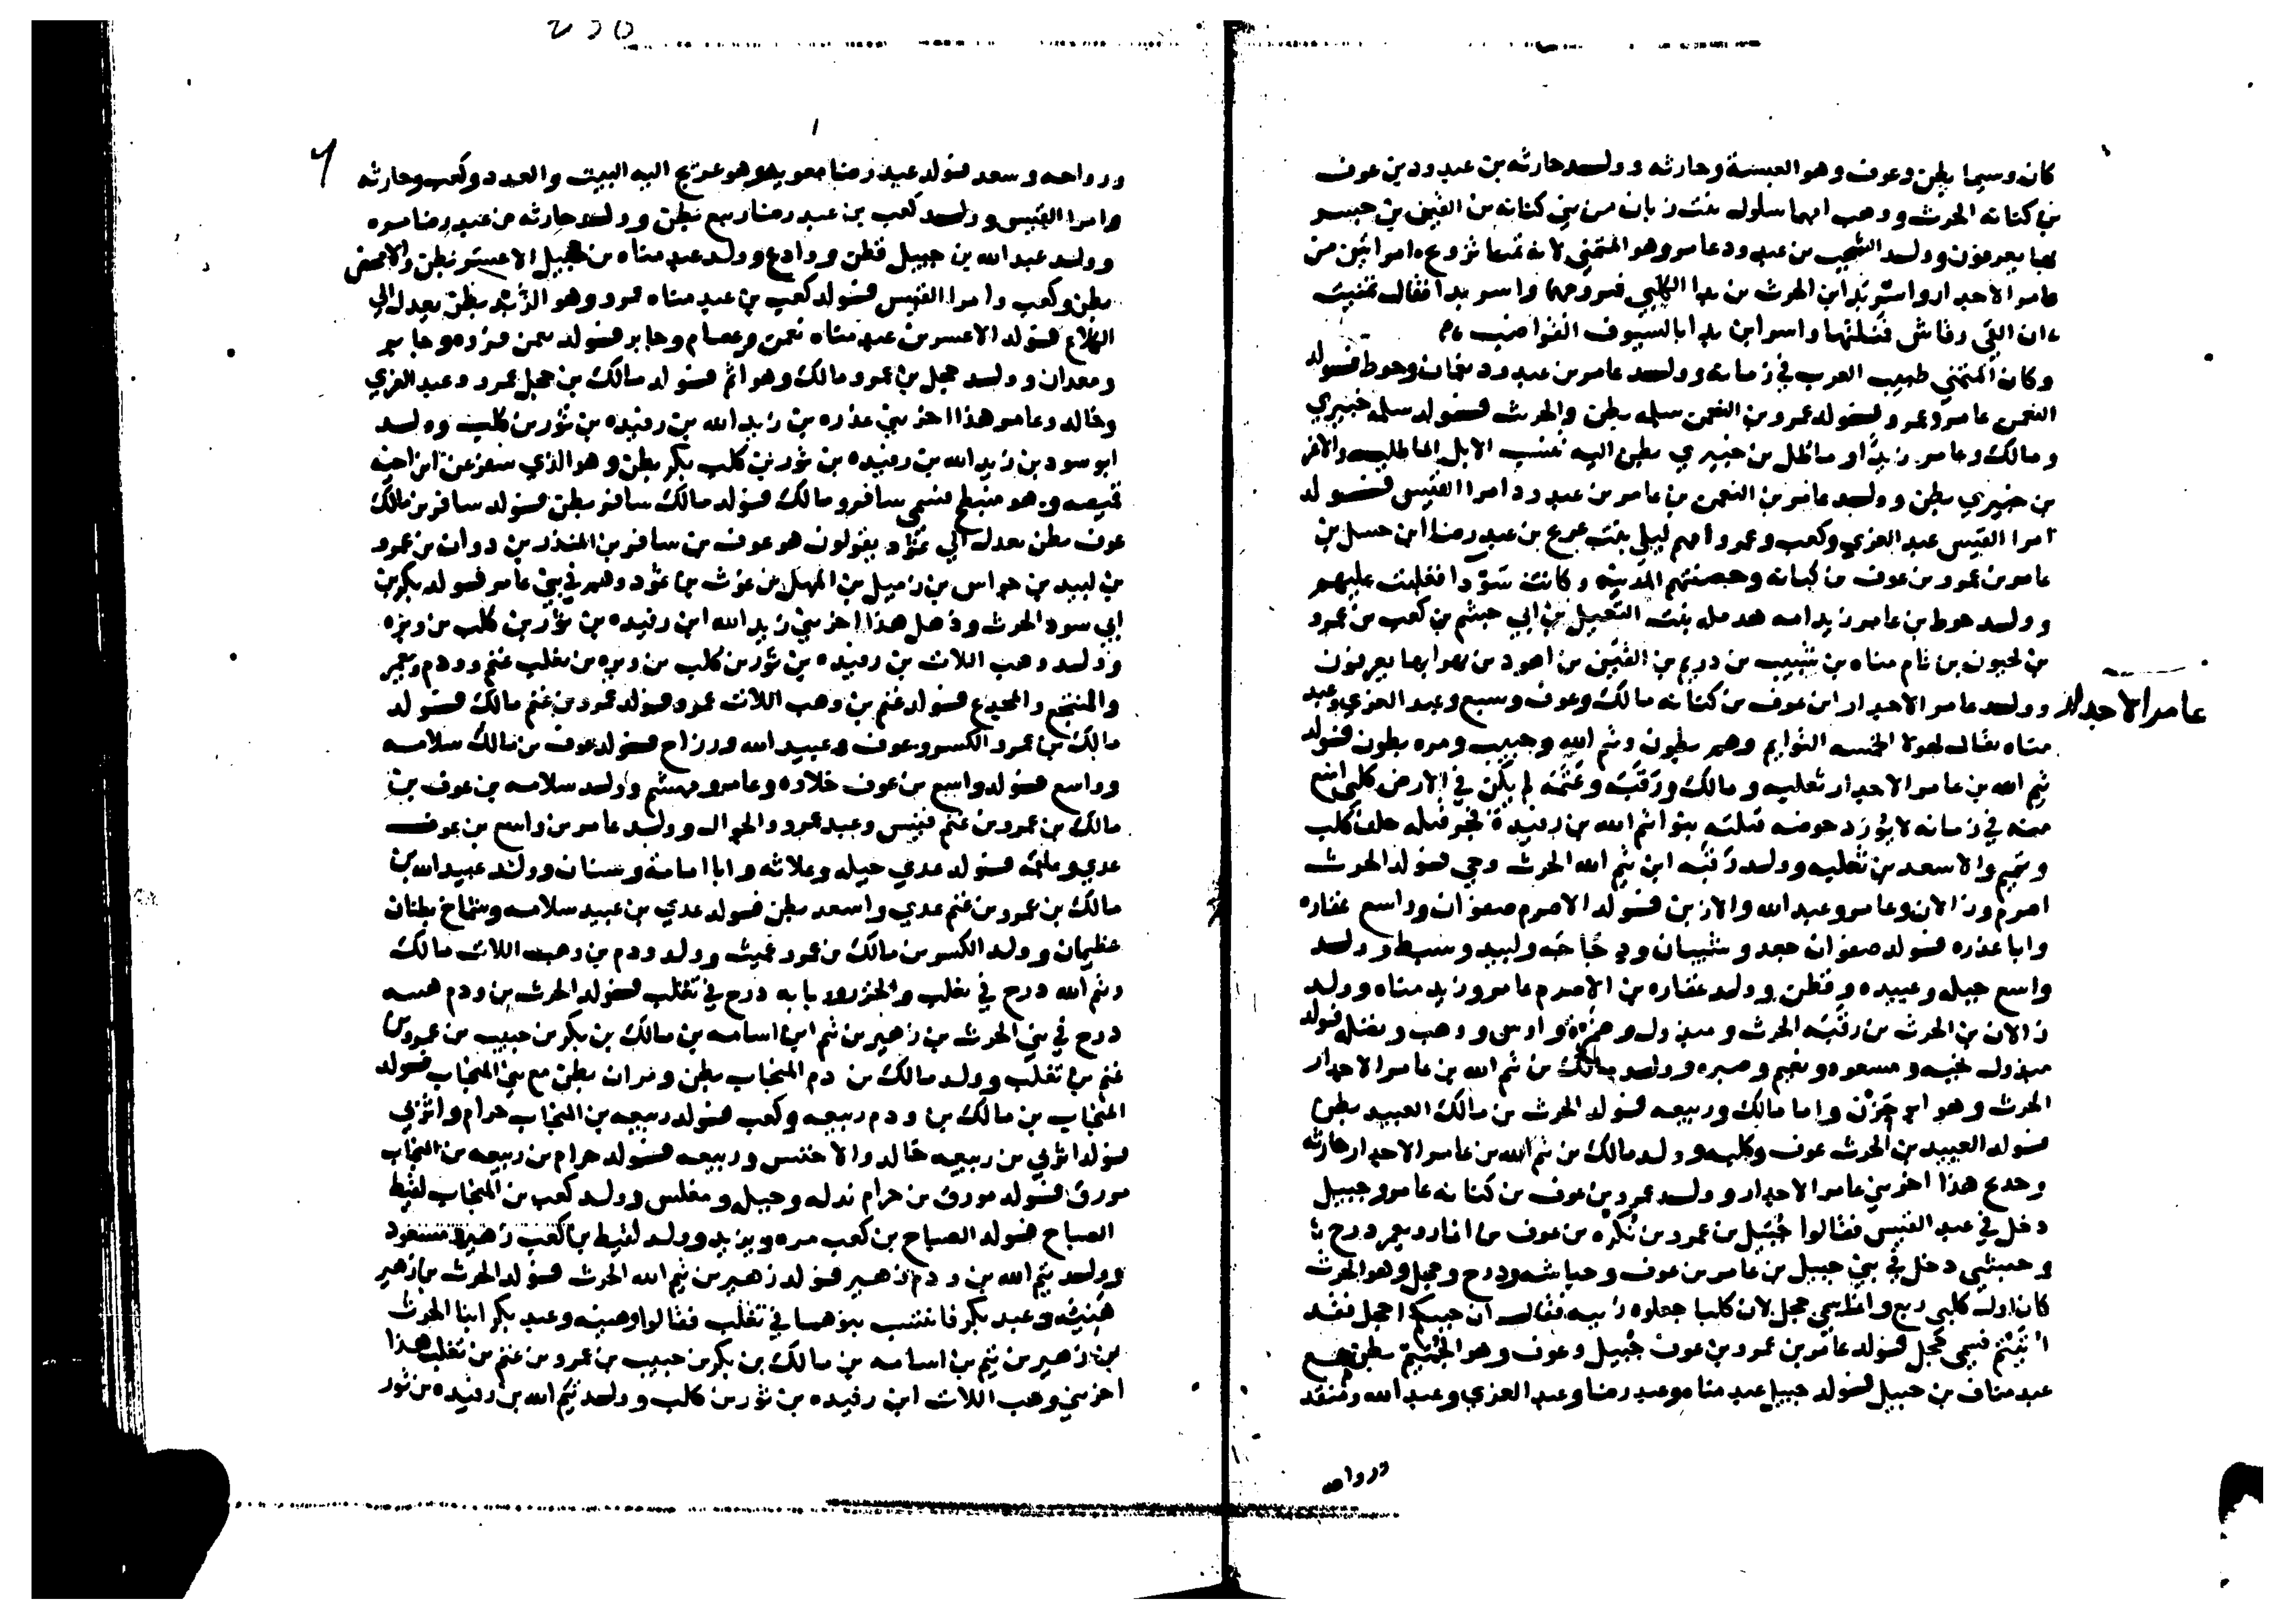 كان وسيما بطن وعوف وهو العبسة وحارثه وولد حارثه بن عبد ود بن عوف
بن كنانه الحرث ووهب امهما سلول بنت زبان من بني كنانه من القين بن جسر
بها يعرفون وولد الشجب بن عبد ود عامر وهو المتمني لانه تمنا تزوج امراتين من
عامر الاحدار واسر بدا بن الحرث من بدا الكلبي فتزوجها واسر بدا فقال تمنيت
ان القى رقاش فنلتها واسر ابن بدا بالسيوف القواضب
وكان المتمني طبيب العرب في زمانه وولد عامر بن عبد ود نعمان وحوط فولد
النعمن عامر وعمرو فولد عمرو بن النعمن سلمه بطن والحرث فولد سلمه خيبري
ومالك وعامر زيدا وماظل من خيبري بطن اليه تنسب الابل الماطليه والاغر
بن خيبري بطن وولد عامر بن النعمن بن عامر بن عبد ود امرا القيس فولد
امرا القيس عبد العزي وكعب وعمرو امهم ليلى بنت عريج بن عبد رضا ابن حسل بن
عامر بن عمرو بن عوف من كنانه وحصنتهم المدينه وكانت سودا فغلبت عليهم
وولد حوط بن عامر زيد امه هدمله بنت التجيل بن ابي حبشم بن كعب بن عمرو
بن لحيون بن تام مناه بن شبيب بن دريم بن القين بن اهود بن بهرا بها يعرفون
عامر الاحدار
وولد عامر الاحدار ابن عوف من كنانه مالك وعوف وسبع وعبد العزي وعبد
مناه يقال لهولا الخمسه التوايم وهم بطون وتم الله وحبيب ومره بطون فولد
تيم الله بن عامر الاحدار ثعلبه ومالك ورقبه وعثمه لم يكن في الارض كلبي امنع
منه في زمانه لا يورد حوضه قتلته بنوا تيم الله بن رفيدة فخر قتله حلف كلب
وتميم والاسعد من ثعلبه وولد رقبه ابن تيم الله الحرث وحي فولد الحرث
اصرم وزالان وعامر وعبد الله والازبن فولد الاصرم صفوان وواسع غفاره
وابا عذره فولد صفوان جعد وشيبان ودحاحه ولبيد وسبط وولد
واسع جبله وعبيده وقطن وولد غفاره من الاصرم عامر وزيد مناه وولد
زالان بن الحرث من رقبه الحرث ومبذول وحمزة واوس ووهب ونفيل فولد
مبذول نجبه ومسعود ونعيم وصبره وولد مالك بن تيم الله بن عامر الاحدار
الحرث وهو ابو حزن واما مالك وربيعه فولد الحرث من مالك العبيد بطن
فولد العبيد بن الحرث عوف وكليب وولد مالك بن تيم الله بن عامر الاحدار حارثه
وحديج هذا اخر بني عامر الاحدار وولد عمرو بن عوف من كنانه عامر وجبيل
دخل في عبد القيس فقالوا جبيل بن عمرو بن نكره بن عوف من انمار ويعمر درج
وحبشي دخل في بني جبيل من عامر بن عوف وحباشه درج وجحل وهو الحرث
كان اول كلبي ربع وانما سمي جحل لان كلبا جعلوه ربيه فقال ان جيتكم احجل فقد
اتيتم فسمي جحل فولد عامر بن عمرو بن عوف جبيل وعوف وهو الجشم بطن مع
عبد مناف بن جبيل فولد جبيل عبد مناه وعبد رضا وعبد العزي وعبد الله ومنقذ
ورواحه
ورواحه وسعد فولد عبد رضا معويه وهو عريج اليه البيت والعدد وكعب وحارثه
وامرا القيس وولد كعب بن عبد رضا ربيع بطن وولد حارثه من عبد رضا مره
وولد عبد الله بن جبيل قطن ووادع وولد عبد مناه من جبيل الاعسر بطن والاعض
بطن وكعب وامرا القيس فولد كعب بن عبد مناه عمرو وهو الدب بطن يعد لالي
الكلاع فولد الاعسر من عبد مناه نعمن وعصام وجابر فولد نعمن فزده وجابر
ومعدان وولد جحل بن عمرو مالك وهو اثم فولد مالك بن جحل عمرو وعبد العزي
وخالد وعامر هذا اخر بني عذره بن زيد الله بن رفيده بن ثور بن كلب وولد
ابو سود بن زيد الله بن رفيده بن ثور بن كلب بكر بطن وهو الذي سفر عن ابن اخيه
قميصه وهو منبطح فسمي سافر ومالك فولد مالك سافر بطن فولد سافر بن مالك
عوف بطن بعدل ابي عود يقولون هو عوف من سافر بن المنذر بن دوان بن عمرو
بن لبيد بن حواس بن زميل بن المهبل بن غوث بن عود وهم في بني عامر فولد بكر بن
ابي سود الحرث وذهل هذا اخر بني زيد الله ابن رفيده بن ثور بن كلب من وبره
وولد وهب اللات بن رفيده بن ثور بن كلب من وبره من تغلب غنم وودم ونمير
والمنتجع والمجدع فولد غنم بن وهب اللات عمرو فولد عمرو بن غنم مالك فولد
مالك بن عمرو الكسر وعوف وعبيد الله ورزاح فولد عوف بن مالك سلامه
وواسع فولد واسع من عوف خلاوه وعامر ومهشم وولد سلامه بن عوف بن
مالك بن عمرو بن غنم قيس وعبد عمرو والجوال وولد عامر بن واسع بن عوف
عدي وعلقمه فولد عدي جبله وعلاثه وابا امامة وسنان وولد عبيد الله بن
مالك بن عمرو بن غنم عدي واسعد بطن فولد عدي بن عبيد سلامه وشماخ بطنان
عظيمان وولد الكسر من مالك بن عمرو غيث وولد ودم بن وهب اللات مالك
وتيم الله درج في تغلب والخزرود بابه درج في تغلب فولد الحرث بن ودم هبه
درج في بني الحرث بن زهير بن تيم ابن اسامه بن مالك بن بكر بن حبيب من عمرو بن
غنم بن تغلب وولد مالك من ودم المنجاب بطن ومران بطن مع بني المنجاب فولد
المنجاب بن مالك بن ودم ربيعه وكعب فولد ربيعه بن المنجاب حرام واثربي
فولد اثربي بن ربيعه خالد والاخنس وربيعه فولد حرام بن ربيعه من المنجاب
مورق فولد مورق بن حرام ندله وجبل ومغلس وولد كعب من المنجاب لقيط
الصباح فولد الصباح بن كعب مره ويزيد وولد لقيط بن كعب زهير ومسعود
وولد تيم الله بن ودم زهير فولد زهير بن تيم الله الحرث فولد الحرث بن زهير
هنيه وعبد بكر فانتسب بنوهما في تغلب فقالوا وهنيه وعبد بكر ابنا الحرث
بن زهير من تيم بن اسامه بن مالك بن بكر بن حبيب بن عمرو بن غنم من تغلب هذا
اخر بني وهب اللات ابن رفيده بن ثور بن كلب وولد تيم الله بن رفيده من ثور